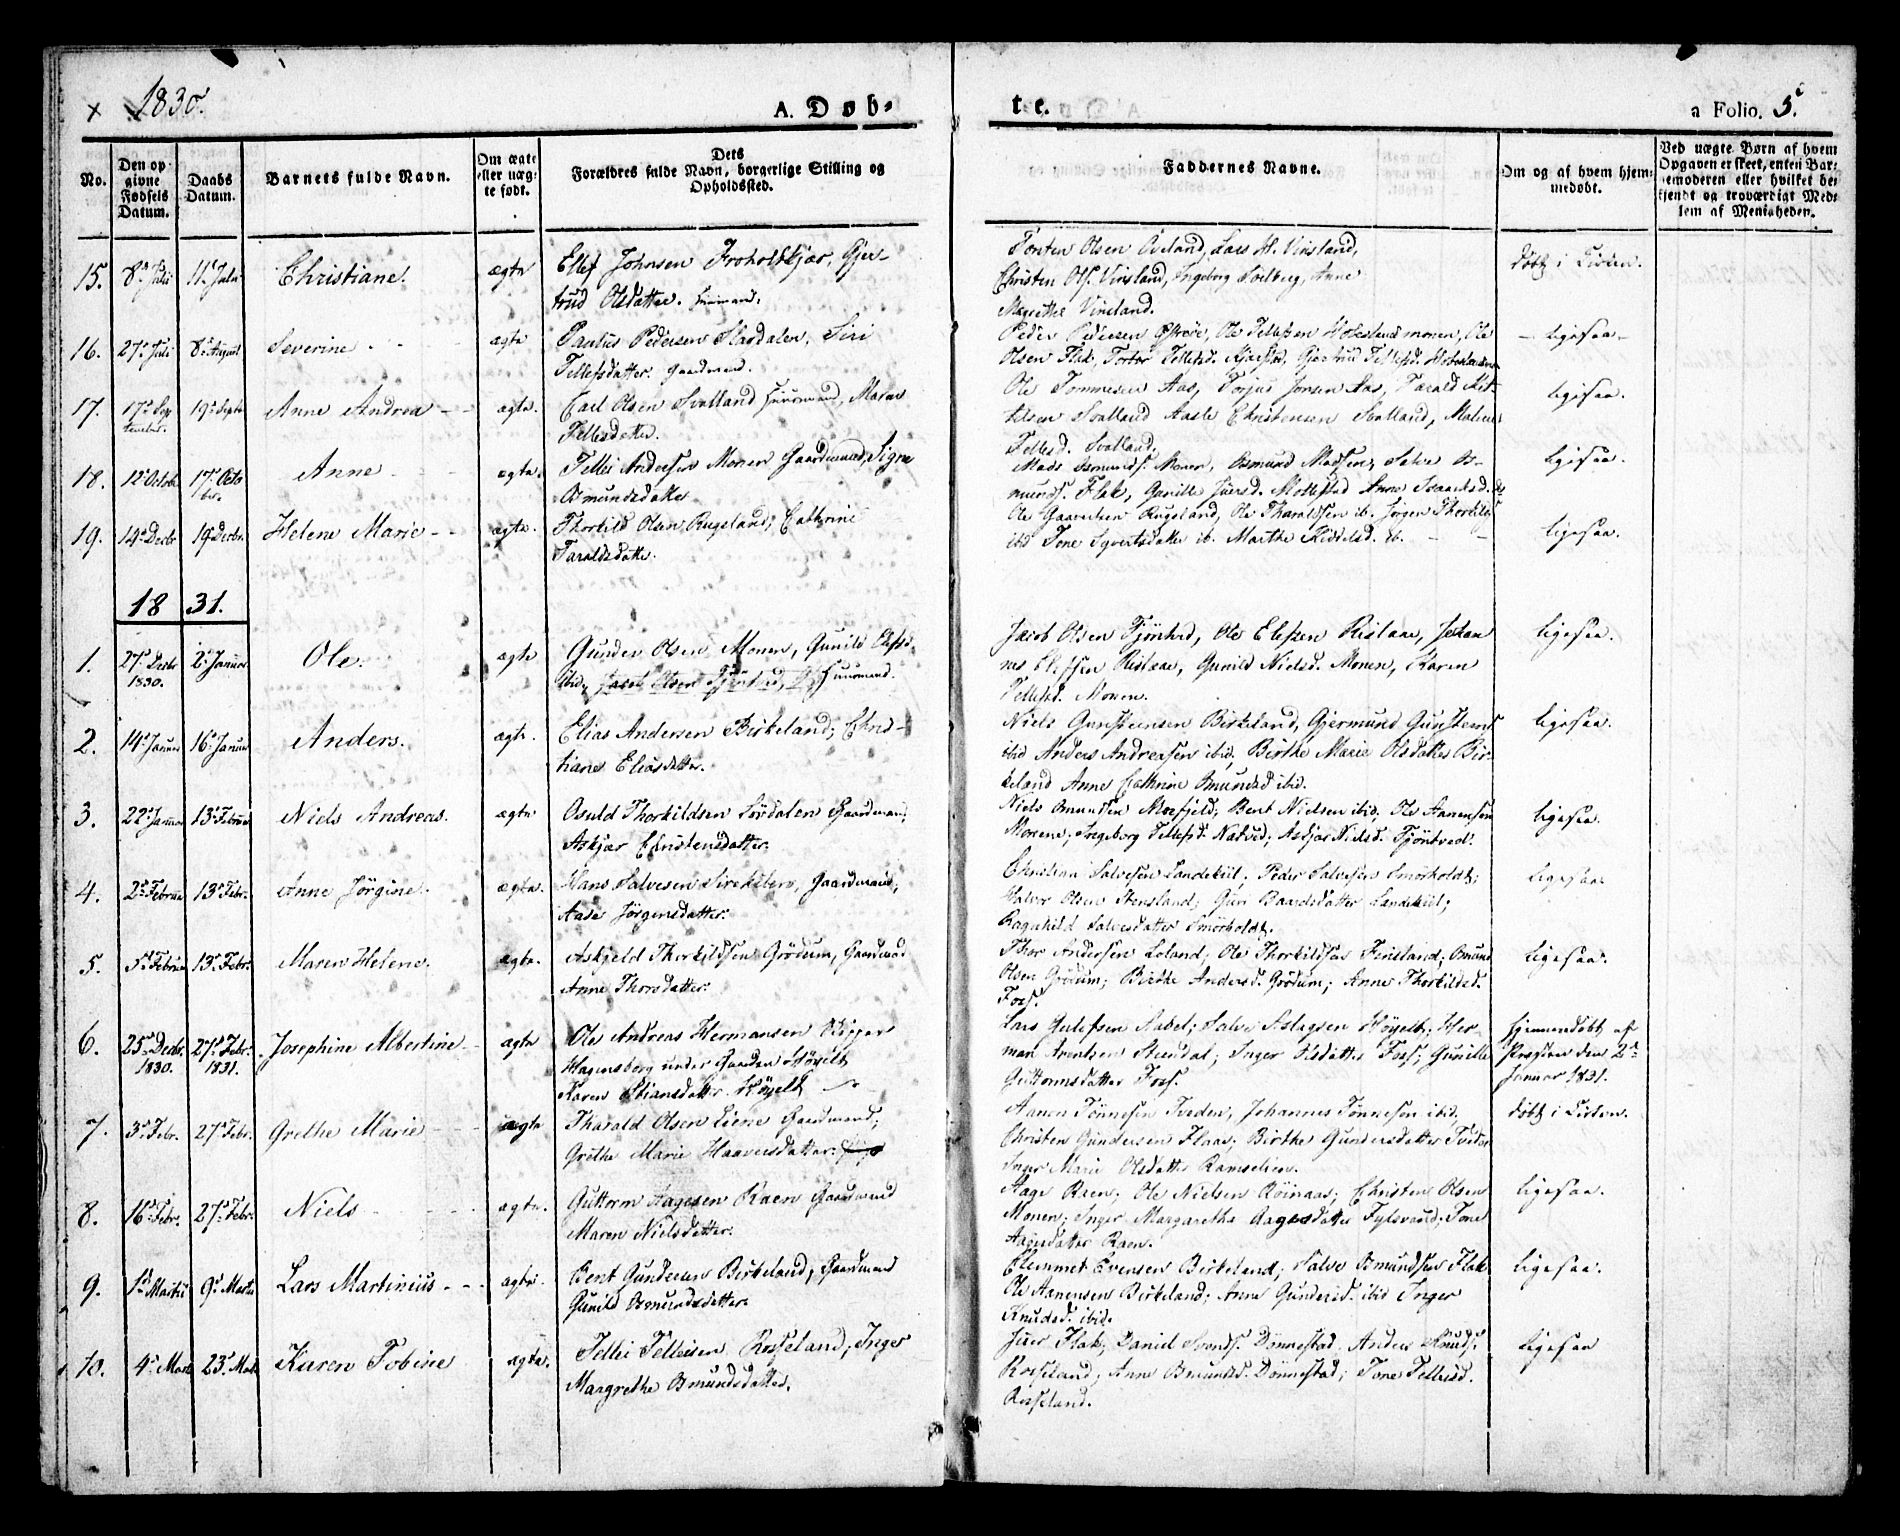 1830.
A. Døb-
te.
a Folio. 5.
No.
Den opgivne Fødsels Datum.
Daabs Datum.
Barnets fulde Navn.
Om ægte eller uægte født.
Dets Forældres fulde Navn, borgerlige Stilling og Opholdssted.
Faddernes Navne.
Om og af hvem hjemmedøbt.
Ved uægte Børn af hvem Opgaven er skeet, enten Barnemoderen eller hvilket bekjendt og troværdigt Medlem af Menigheden.
15. 8de Juli 11te Juli Christiane. ægte Ellef Johnsen Froholtkjær, Gjer-
trud Olsdatter. Huusmand.
Torsten Olsen Aveland, Lars H. Vinsland,
Christen Ols. Vinsland, Ingeborg Solberg, Anne
Magrethe Vinsland.
døbt i Kirken.
16. 27de Juli 8de August Severine ægte Paulus Pedersen Slagdalen, Siri
Tellefsdatter. Gaardmand.
Peder Pedersen Ole Tellefsen Ole
Olsen Flak, Tellefsd. Gjertrud Tellefsd.
ligesaa
17. 17de Septembr. 19de Septb. Anne Andrea ægte. Carl Olsen Svalland Huusmand, Maren
Tellefsdatter.
Ole Tommesen Aas, Torjus Jonsen Aas, Tarald Kit-
telsen Svalland Aasle Christensen Svalland, Malene
Tellefsd. Svalland.
ligesaa.
18. 12te Octobr 17de Octobr. Anne ægte. Tellef Andersen Monen Gaardmand, Signe
Osmundsdatter
Mads Osmunds. Monen, Osmund Madsen, Salve Os-
munds. Flak, Gunille Mollestad Anne Isaachsd. ib
ligesaa.
19. 14de Decbr 19de Decbr. Helene Marie ægte. Thorkild Olsen Rugsland, Cathrine
Taraldsdatter.
Ole Rugsland, Ole Tharaldsen ib. Jørgen Thorkilds.
ibd Tone Syvertsdatter ib. Marthe Kiddelsd. ib.
ligesaa.
1831.
1. 27de Decbr 1830. 2den Januar Ole. ægte Gunder Olsen Monen, Gunild Elefsd.
ibid, Jacob Olsen Tjønhed, Huusmand.
Jacob Olsen Tjønhed, Ole Elefsen Rislaae, Johan
nes Elefsen Rislaae, Gunild Nielsd. Monen, Karen
Tellefsd. Monen.
ligesaa.
2. 14de Januar 16de Januar Anders. ægte. Elias Andersen Birkeland, Chris-
tiane Eliasdatter.
Niels Gunstensen Birkeland, Gjermund Gunstens.
ibid Anders Andreasen ibid, Birthe Marie Olsdatter Bir-
keland Anne Cathrine Omundsd ibid.
ligesaa.
3. 22de Januar 13de Februar Niels Andreas. ægte Osuld Thorkildsen Sørdalen Gaardmand;
Askjær Christensdatter.
Niels Omundsen Mosfjeld, Bent Nielsen ibid, Ole Aanensen
Monene, Ingeborg Tellefsd. Natved; Askjær Nielsd. Tjøntved.
ligesaa.
4. 2den Februar 13de Febr. Anne Jørgine. ægte. Hans Salvesen Gaardmand;
Aase Jørgensdatter.
Christian Salvesen Landekiil, Peder Salvesen Smørholdt;
Halvor Olsen Stensland; Guri Baardsdatter Landekiil;
Ragnhild Salvesdatter Smørholdt.
ligesaa.
5. 5te Februar 13de Febr. Maren Helene. ægte. Askjeld Thorkildsen Grødum, Gaardmand
Anne Thorsdatter.
Thor Andersen Loland; Ole Thorkildsen Finsland; Omund
Olsen Grødum; Birthe Andersd. Grødum; Anne Thorkildsd.
Foss.
ligesaa.
6. 25de Decbr. 1830. 27de Febr. 1831. Josephine Albertine ægte Ole Andreas Hermansen Skipper
Hagensborg under Gaarden Høyelt
Karen Stiansdatter Høyelt
Lars Gulefsen Aabel; Salve Aslagsen Høyelt; Her-
man Arentsen Steendal; Inger Olsdatter Foss; Gunille
Guttormsdatter Foss.
hjemmedøbt af
Præsten den 2den
Januar 1831.
7. 3de Febr. 27de Febr. Grethe Marie ægte Tharald Olsen Liene Gaardmand;
Grethe Marie Haaversdatter.
Aanon Tønnesen Tveden, Johannes Tønnesen ibid,
Christen Gundersen Flaas; Birthe Gundersdatter Tveden
Inger Marie Olsdatter Ramselien.
døbt i Kirken.
8. 16de Febr. 27de Febr. Niels ægte. Guttorm Aagesen Raen Gaardmand
Maren Nielsdatter.
Aage Raen; Ole Nielsen Røinaas; Christen Olsen
Monen; Inger Margarethe Aagesdatter Fylsvand; Tone
Aagesdatter Raen.
ligesaa.
9. 1ste Martii 9de Martii Lars Martinius ægte. Bent Gundersen Birkeland, Gaardmand
Gunild Osmundsdatter.
Clemmet Evensen Birkeland; Salve Osmundsen Flak
Ole Aanensen Birkeland; Anne Gundersd. ibid Inger
Knudsd. ibid.
ligesaa.
10. 4de Marts 23de Marts Karen Tobine ægte. Tellef Tellefsen Rosseland; Inger
Margrethe Osmundsdatter.
Iver Flak, Daniel Svends. Dønnestad, Anders Knuds.
Rosseland, Anne Osmundsd. Dønnestad; Tone Tellefsd.
Rosseland.
ligesaa